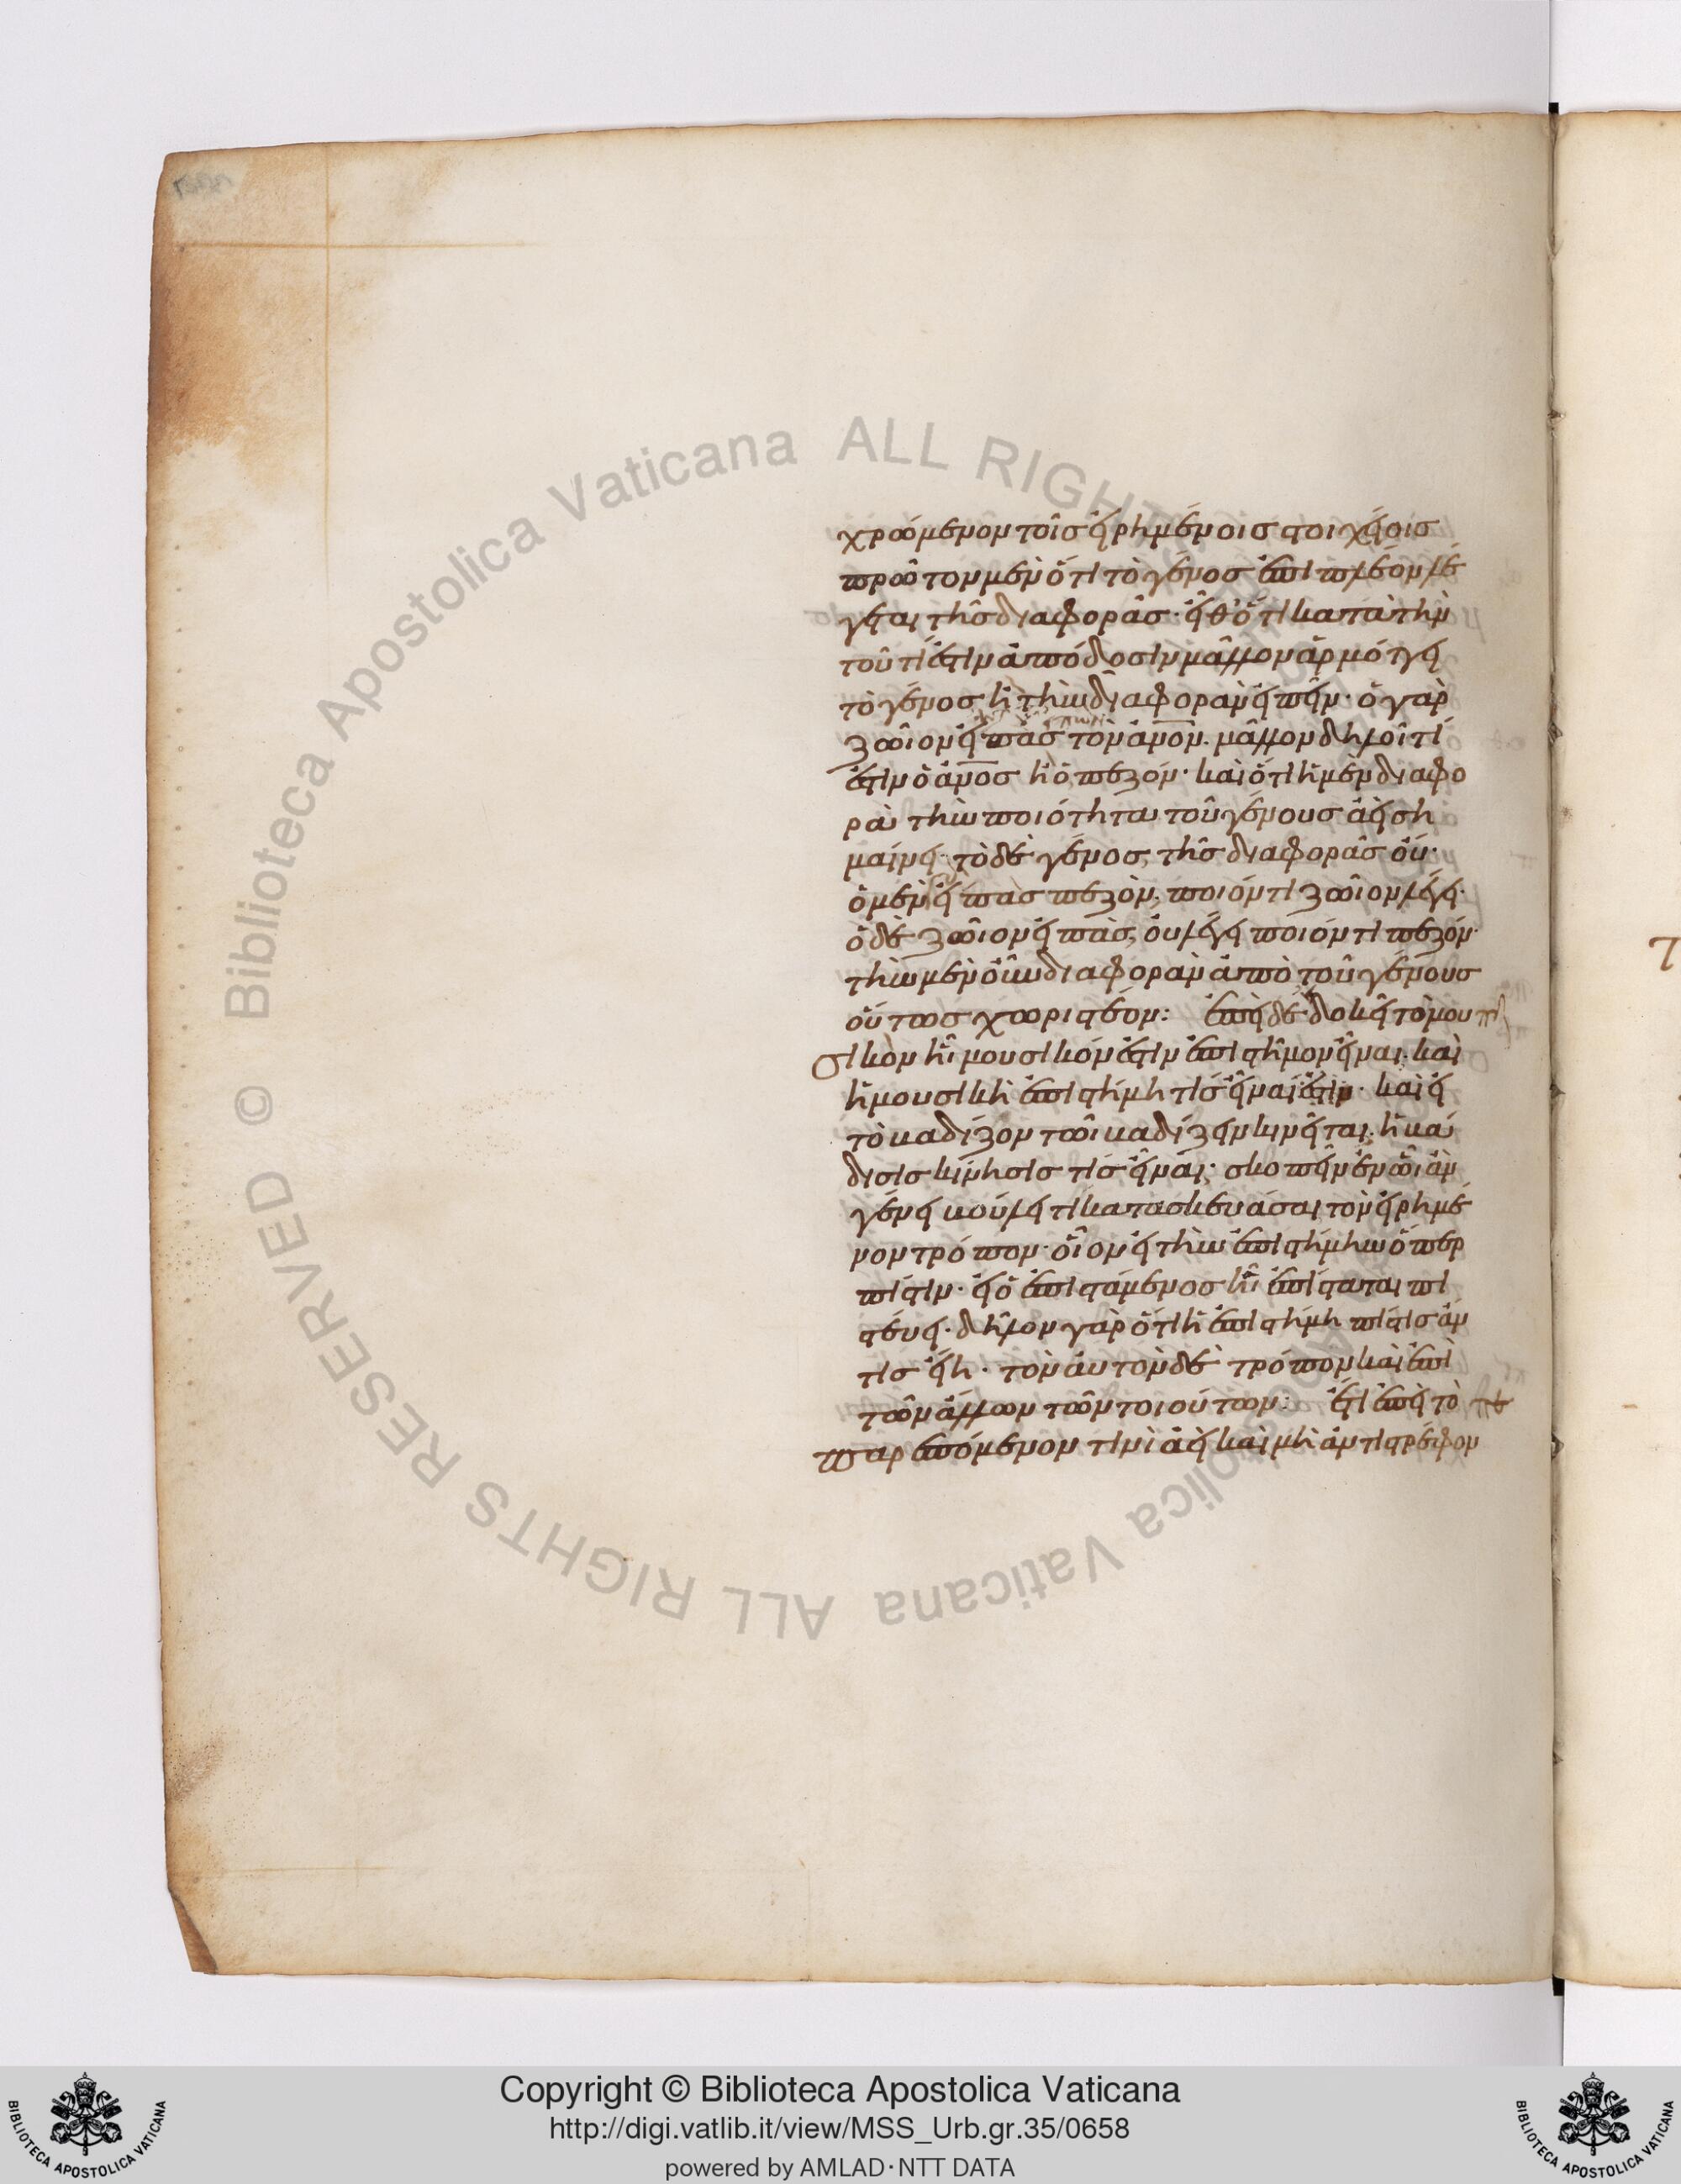 χρώμενον τοῖς εἰρημένοις στοιχείοις
πρῶτον μὲν ὅτι τὸ γένος ἐπὶ πλέον λέ
γεται τῆς διαφορᾶς· εἶθ' ὅτι κατὰ τὴν
τοῦ τί ἐστιν ἀπόδοσιν μᾶλλον ἁρμόττει
τὸ γένος ἢ τὴν διαφορὰν εἰπεῖν· ὁ γὰρ
ζῶιον εἴπας τὸν ἄνον· μᾶλλον δηλοῖ τί
ἐστιν ὁ ἄνος ἢ ὁ πεζόν· καὶ ὅτι ἡ μὲν διαφο
ρὰ τὴν ποιότητα τοῦ γένους ἀεὶ ση
μαίνει· τὸ δὲ γένος, τῆς διαφορᾶς οὔ·
ὁ μὲν εἴπας πεζὸν, ποιόν τι ζῶιον λέγει·
ὁ δὲ ζῶιον εἴπας, οὐ λέγει ποιόν τι πεζόν·
τὴν μὲν οὖν διαφορὰν ἀπὸ τοῦ γένους
οὕτως χωριστέον: ἐπεὶ δὲ δοκεῖ τὸ μου
σικὸν ἧι μουσικόν ἐστιν ἐπιστῆμον εἶναι· καὶ
ἡ μουσικὴ ἐπιστήμη τίς εἶναί ἐστιν· καὶ εἰ
τὸ βαδίζον τῶι βαδίζειν κινεῖται· ἡ βά
δισις κίνησίς τις εἶναι· σκοπεῖν ἐν ὧι ἂν
γένει βούλει τι κατασκευάσαι τὸν εἰρημέ
νον τρόπον· οἷον εἰ τὴν ἐπιστήμην ὅπερ
πίστιν· εἰ ὁ ἐπιστάμενος ἧι ἐπίσταται πι
στεύει· δῆλον γὰρ ὅτι ἡ ἐπιστήμη πίστις ἄν
τις εἴη· τὸν αὐτὸν δὲ τρόπον καὶ ἐπὶ
τῶν ἄλλων τῶν τοιούτων: ἔτι ἐπεὶ τὸ
παρεπόμενον τινὶ ἀεὶ καὶ μὴ ἀντιστρέφον
© Biblioteca Apostolica Vaticana ALL RIGHTS RESERVED
Copyright © Biblioteca Apostolica Vaticana
http://digi.vatlib.it/view/MSS_Urb.gr.35/0658
powered by AMLAD·NTT DATA
BIBLIOTECA APOSTOLICA VATICANA
BIBLIOTECA APOSTOLICA VATICANA